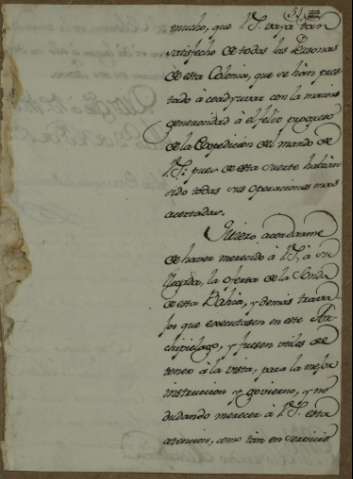 mucho, que V.S. vaya tan
satisfecho de todas las Personas
de esta Colonia, que se hàn pres
tado à coadyuvar con la mayor
generosidad à el feliz progreso
de la Expedicion del mando de
V.S. pues de esta suerte habràn
sido todas sus operaciones mas
acertadas.
Quiero acordarme
de haver merecido à V.S. à su
llegada, la oferta de la Sonda
de esta Bahia, y demas traba
jos que executasen en este Ar
chipielago, y fuesen utiles de
tener à la vista, para la mejor
instruccion y govierno, y no
dudando merecer à V.S. esta
atencion, como tan en servicio